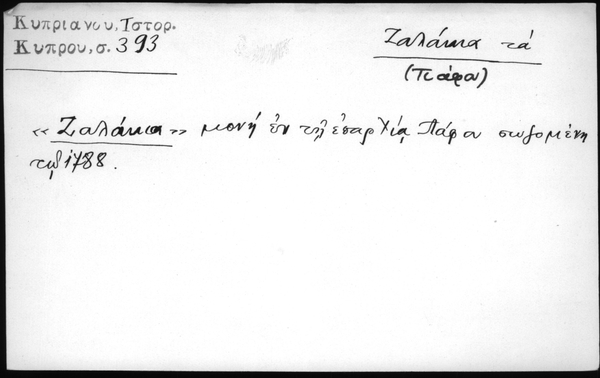 Κυπριανου, Ιστορ.
Κυπρου, σ. 393
Ζαλάκια τά
(Πάφου)
«Ζαλάκια» μονή ἐν τῇ ἐπαρχίᾳ Πάφου σωζομένη
τῷ 1788.